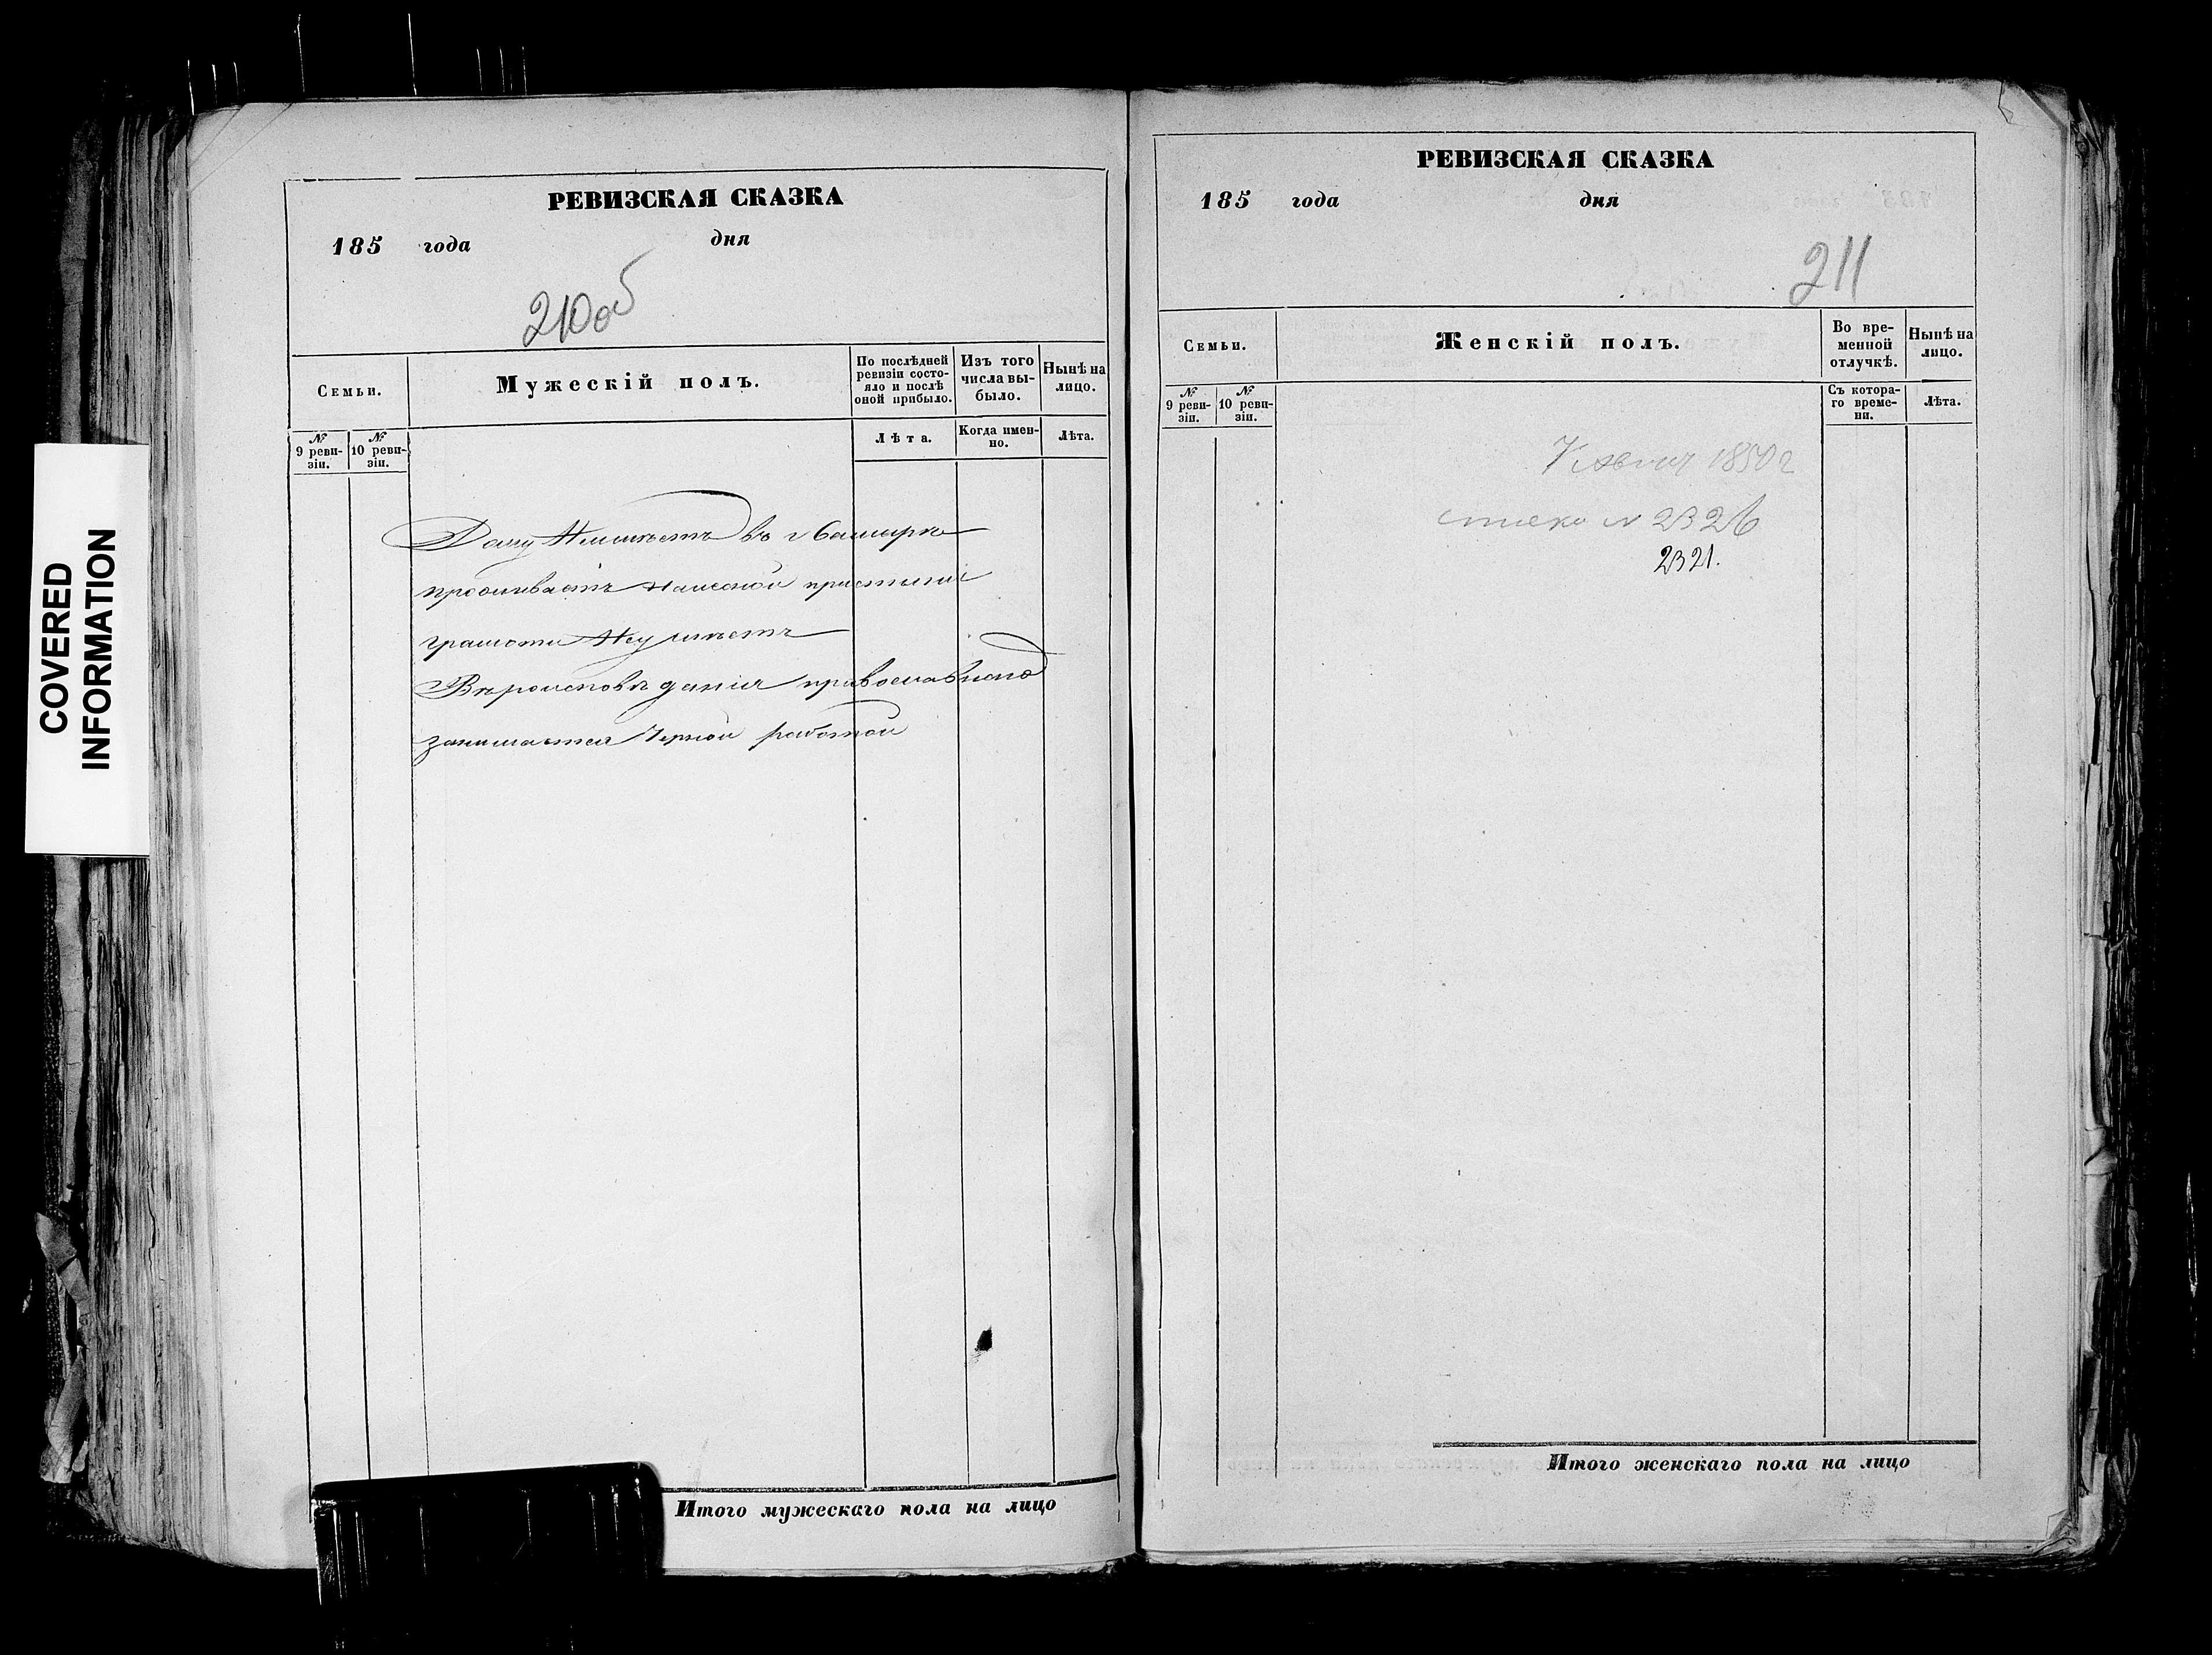 COVERED
INFORMATION
РЕВИЗСКАЯ СКАЗКА
185 года дня
210об
Семьи.
Мужескій полъ.
По послѣдней ревизіи состояло и послѣ оной прибыло.
Изъ того числа выбыло.
Нынѣ на лицо.
№ 9 ревизіи.
№ 10 ревизіи.
Лѣта.
Когда именно.
Лѣта.
Дому Неимѣетъ въ г
проживаетъ пристани
грамоти Неумѣетъ
Вѣроисповѣданія православнаго
занимается Черной работой
Итого мужескаго пола на лицо
РЕВИЗСКАЯ СКАЗКА
185 года дня
211
Семьи.
Женскій полъ.
Во временной отлучкѣ.
Нынѣ на лицо.
№ 9 ревизіи.
№ 10 ревизіи.
Съ котораго времени.
Лѣта.
1850 г
№ 2326
2321.
Итого женскаго пола на лицо